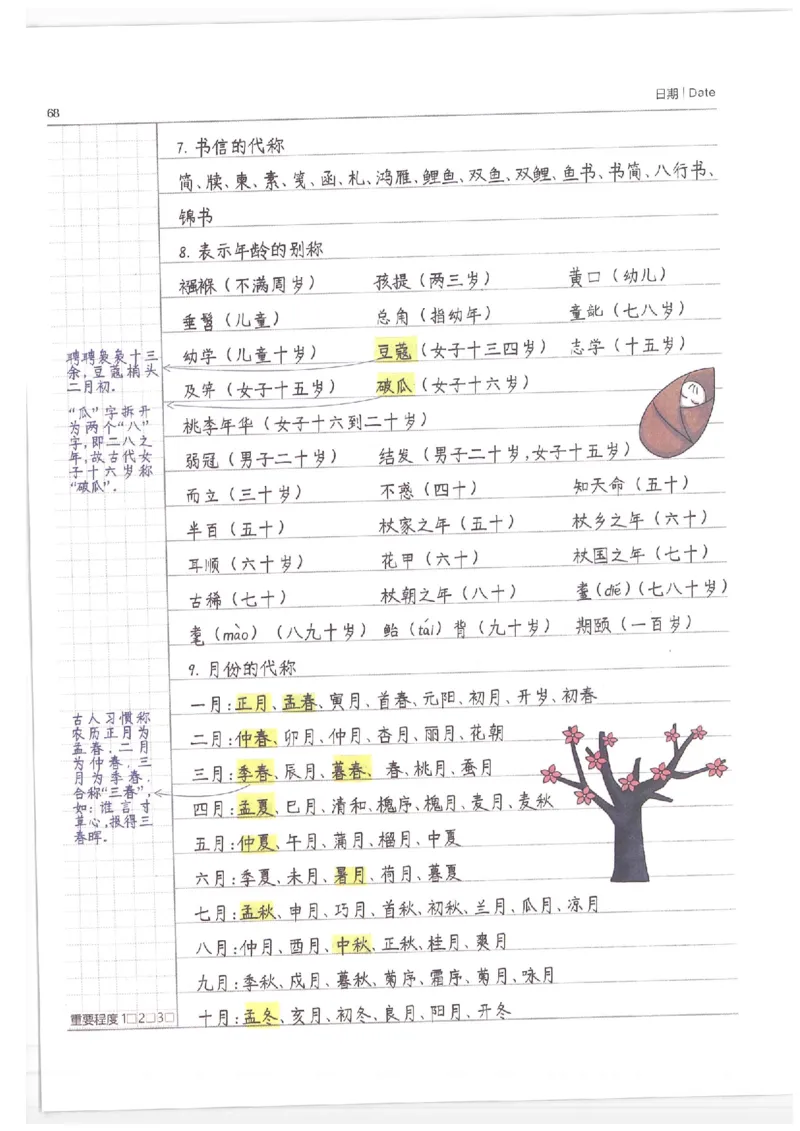 日期 | Date
68
7. 书信的代称
简、牍、柬、素、笺、函、札、鸿雁、鲤鱼、双鱼、双鲤、鱼书、书简、八行书、
锦书
8. 表示年龄的别称
襁褓（不满周岁） 孩提（两三岁） 黄口（幼儿）
垂髫（儿童） 总角（指幼年） 童龀（七八岁）
幼学（儿童十岁） 豆蔻（女子十三四岁） 志学（十五岁）
及笄（女子十五岁） 破瓜（女子十六岁）
桃李年华（女子十六到二十岁）
弱冠（男子二十岁） 结发（男子二十岁,女子十五岁）
而立（三十岁） 不惑（四十） 知天命（五十）
半百（五十） 杖家之年（五十） 杖乡之年（六十）
耳顺（六十岁） 花甲（六十） 杖国之年（七十）
古稀（七十） 杖朝之年（八十） 耋(dié)（七八十岁）
耄（mào）（八九十岁） 鲐（tái）背（九十岁） 期颐（一百岁）
9. 月份的代称
一月:正月、孟春、寅月、首春、元阳、初月、开岁、初春
二月:仲春、卯月、仲月、杏月、丽月、花朝
三月:季春、辰月、暮春、 春、桃月、蚕月
四月:孟夏、巳月、清和、槐序、槐月、麦月、麦秋
五月:仲夏、午月、蒲月、榴月、中夏
六月:季夏、未月、暑月、荷月、暮夏
七月:孟秋、申月、巧月、首秋、初秋、兰月、瓜月、凉月
八月:仲月、酉月、中秋、正秋、桂月、爽月
九月:季秋、戌月、暮秋、菊序、霜序、菊月、咏月
十月:孟冬、亥月、初冬、良月、阳月、开冬
娉娉袅袅十三
余,豆蔻梢头
二月初.
“瓜”字拆开
为两个“八”
字,即二八之
年,故古代女
子十六岁称
“破瓜”.
古人习惯称
农历正月为
孟春.二月
为仲春.三
月为季春.
合称“三春”,
如:谁言寸
草心,报得三
春晖.
重要程度 1□2□3□